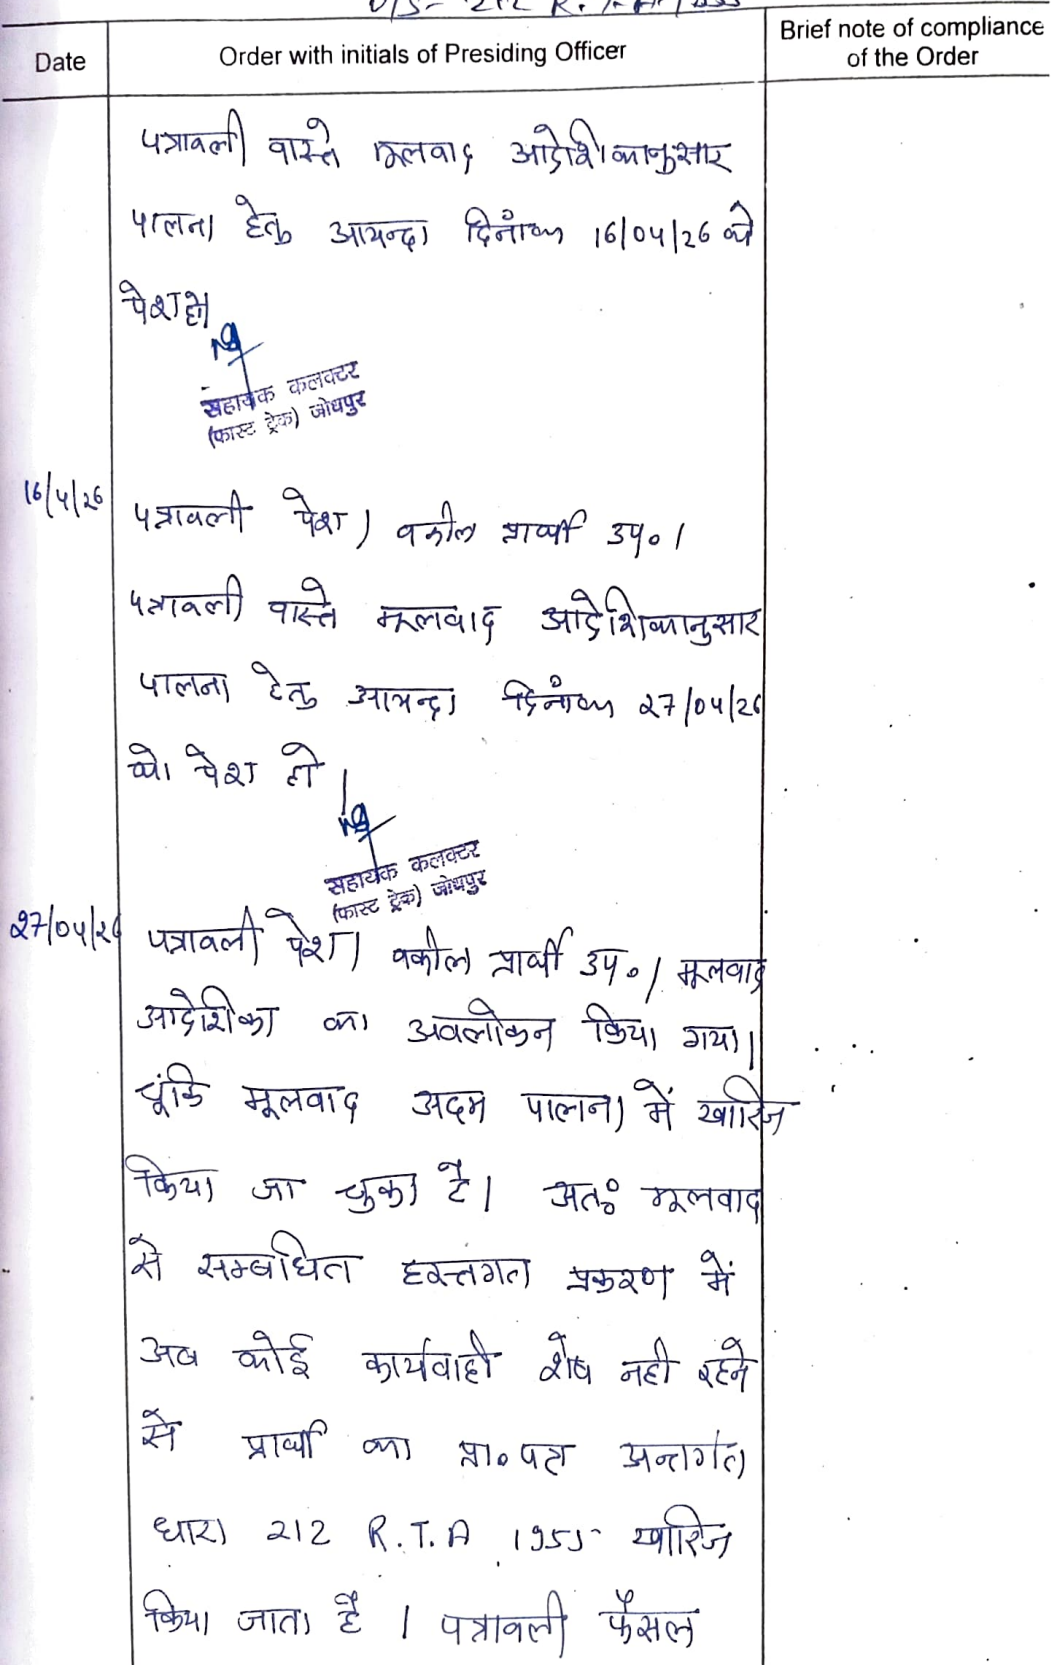 U/S- 212 R.T.A. 1955
Date
Order with initials of Presiding Officer
Brief note of compliance
of the Order
पत्रावली वास्ते मूलवाद आदेशिकानुसार
पालना हेतु आयन्दा दिनांक 16/04/26 को
पेश हो
सहायक कलक्टर
(फास्ट ट्रेक) जोधपुर
16/4/26
पत्रावली पेश। वकील प्रार्थी उप०।
पत्रावली वास्ते मूलवाद आदेशिकानुसार
पालना हेतु आयन्दा दिनांक 27/04/26
को पेश हो।
सहायक कलक्टर
(फास्ट ट्रेक) जोधपुर
27/04/26
पत्रावली पेश। वकील प्रार्थी उप०। मूलवाद
आदेशिका का अवलोकन किया गया।
चूंकि मूलवाद अदम पालना में खारिज
किया जा चुका है। अतः मूलवाद
से सम्बंधित हस्तगत प्रकरण में
अब कोई कार्यवाही शेष नही रहने
से प्रार्थी का प्रा०पत्र अन्तर्गत
धारा 212 R.T.A 1955 खारिज
किया जाता है। पत्रावली फैसल